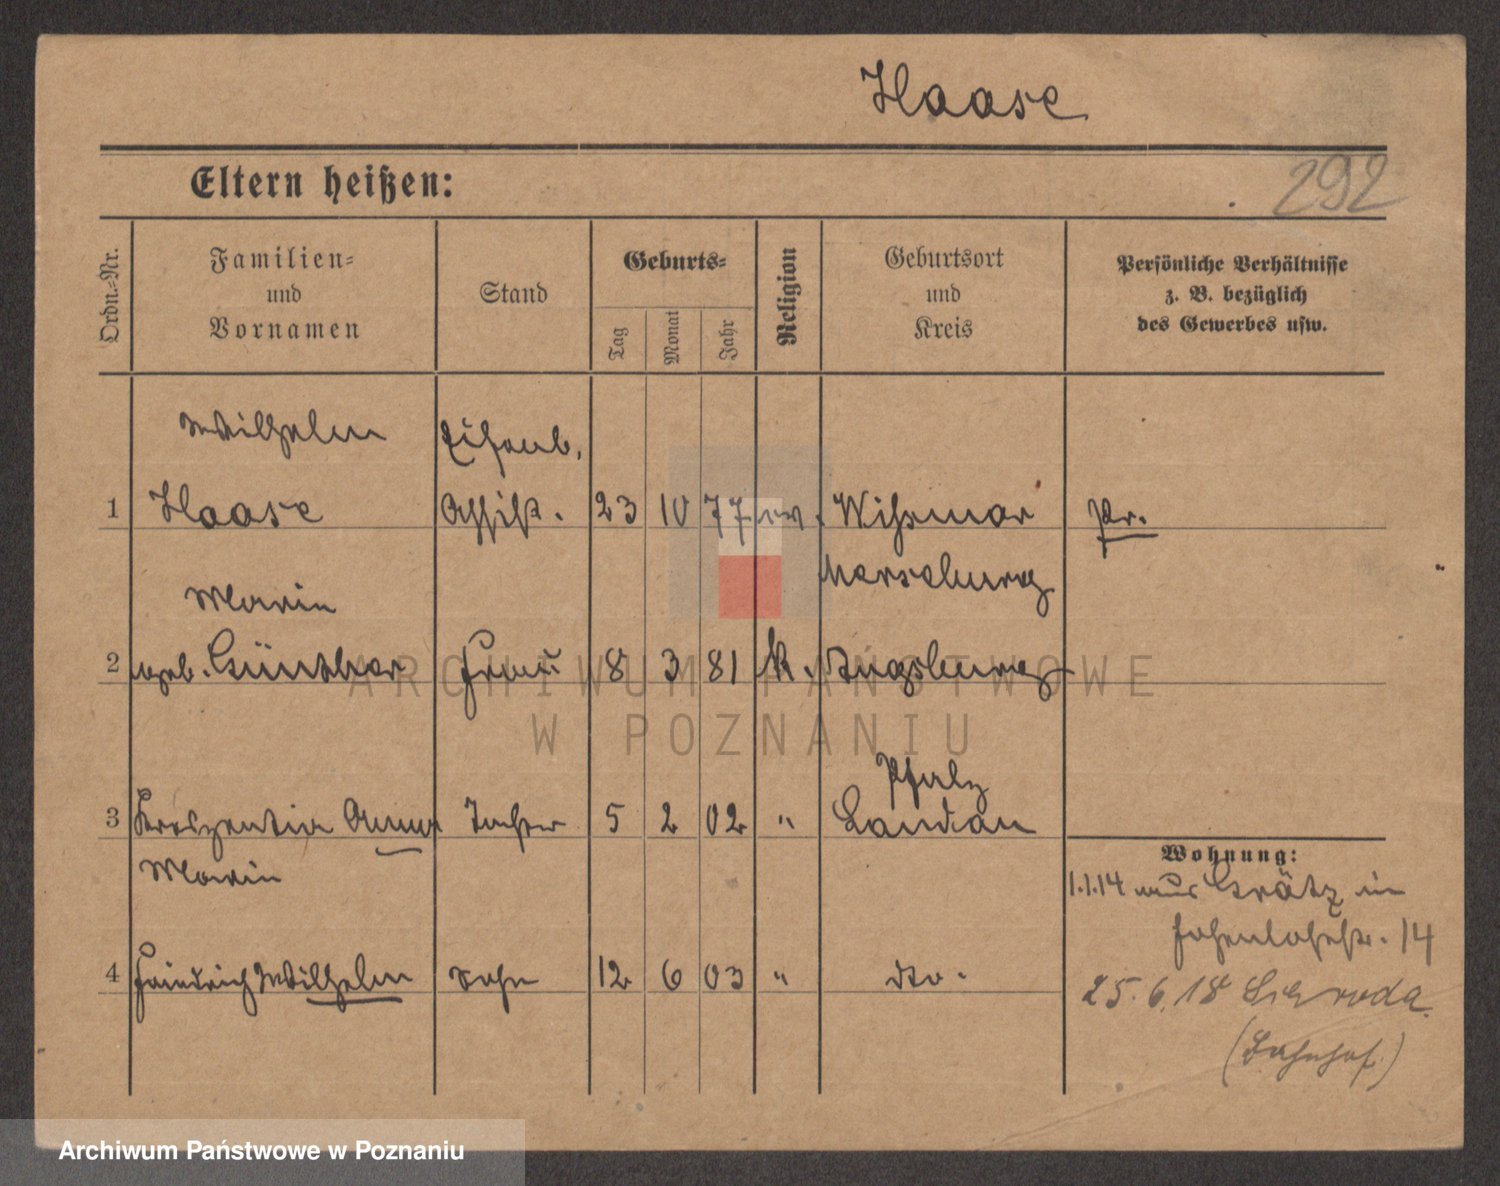 Haase
Eltern heißen:
292
Ordn.-Nr.
Familien-
und
Vornamen
Stand
Geburts-
Tag
Monat
Jahr
Religion
Geburtsort
und
Kreis
Persönliche Verhältnisse
z. B. bezüglich
des Gewerbes usw.
Wilhelm Eisenb.
1 Haase Assist. 23 10 77 ev. Wismar Pr.
Marie Merseburg
2 geb. Günther Frau 8 3 81 k. Augsburg
Pfalz
3 Kreszentia Anna Tochter 5 2 02 " Landau
Marie
4 Friedrich Wilhelm Sohn 12 6 03 " dto.
Wohnung:
1.1.14 aus Grätz in
Hohenlohestr. 14
25.6.18
(Bahnhof)
ARCHIWUM PAŃSTWOWE
W POZNANIU
Archiwum Państwowe w Poznaniu